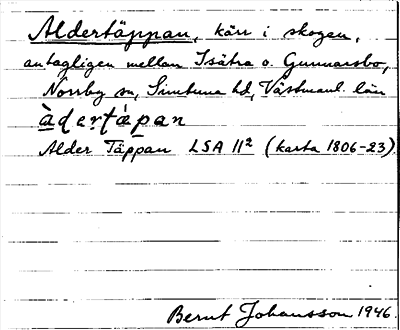 Aldertäppan, kärr i skogen,
antagligen mellan Isätra o. Gunnarsbo,
Norrby sn, Simtuna hd, Västmanl. län
àdertápan
Alder Täppan LSA 11² (karta 1806-23).
Bernt Johansson 1946.